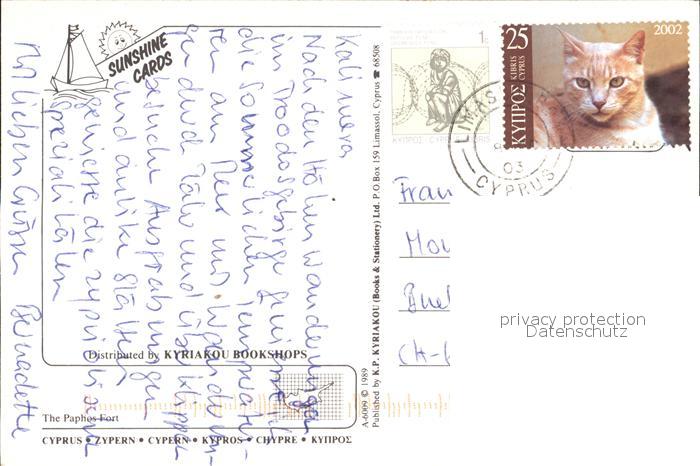 SUNSHINE
CARDS
Kali mera
Nach den Höhenwanderungen
im Troodosgebirge geniesse ich
die sommerlichen Tempera-
turen am Meer und Wanderun-
gen durch Täler und über Klippen
besuche Ausgrabungen
und antike Stätten
geniesse die zypriotischen
Spezialitäten
Mit lieben Grüssen Bernadette
Distributed by KYRIAKOU BOOKSHOPS
The Paphos Fort
CYPRUS • ZYPERN • CYPERN • KYPROS • CHYPRE • ΚΥΠΡΟΣ
A-6009 © 1989
Published by K.P. KYRIAKOU (Books & Stationery) Ltd. P.O.Box 159 Limassol, Cyprus ☎ 68508
1c
ΚΥΠΡΟΣ KIBRIS CYPRUS
25
2002
ΚΥΠΡΟΣ
KIBRIS
CYPRUS
LIMASS
03
CYPRUS
Fran
Mou
CH-
privacy protection
Datenschutz